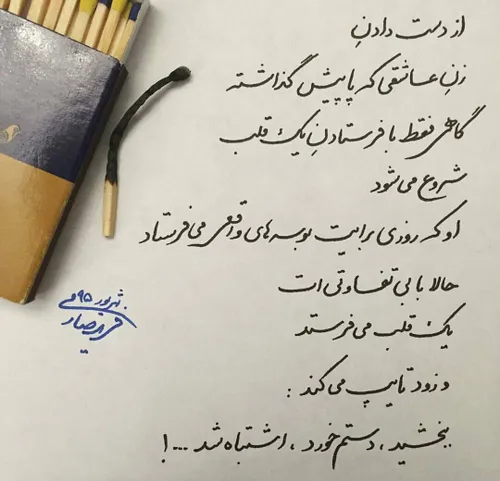 از دست دادنِ
زنِ عاشقی که پا پیش گذاشته
گاهی فقط با فرستادنِ یک قلب
شروع می شود
او که روزی برایت بوسه های واقعی می فرستاد
حالا با بی تفاوتی ات
یک قلب می فرستد
و زود تایپ می کند :
ببخشید ، دستم خورد ، اشتباه شد ...!
شهریور ۹۵
فرید صارمی